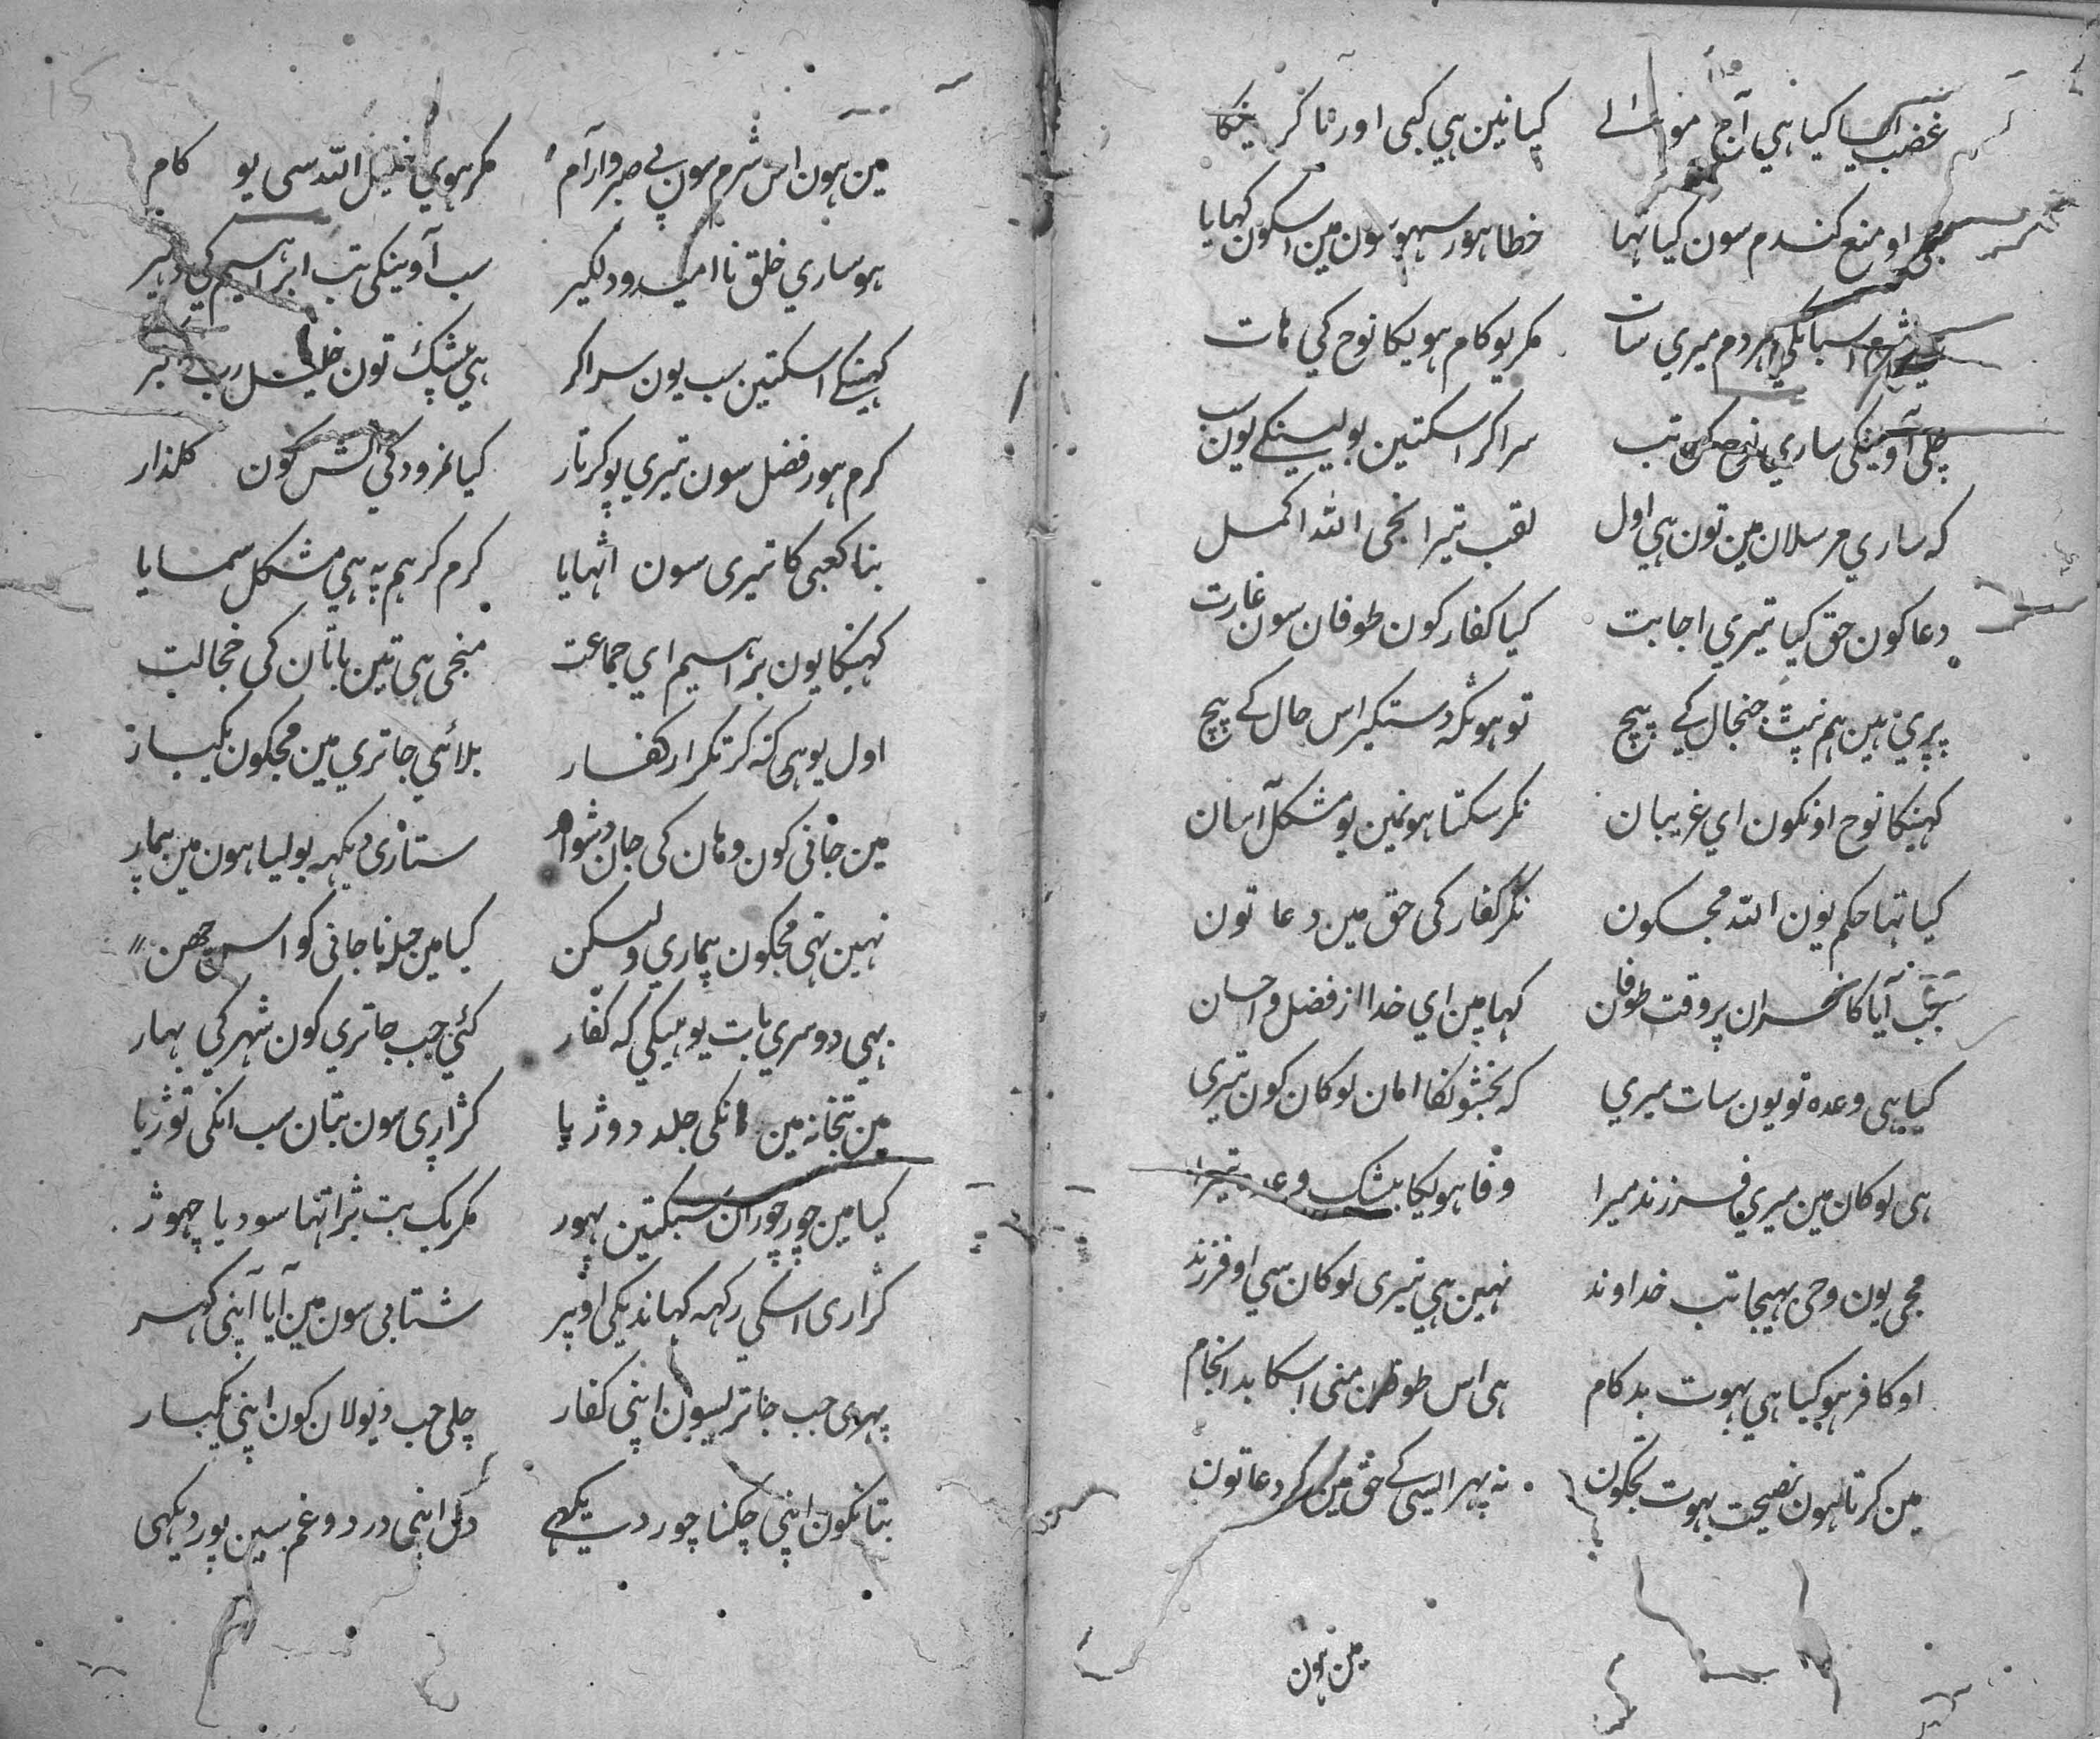 غضب ایسا کیا هی آج مولے کیا نین هی کبی اور نا کریکا
مجی او منع کندم سون کیا تہا خطا هور سہو سون مین اسکون کہایا
هردم میری سات مکر یو کام هویکا نوح کی هات
چلی آوینکی ساری تب سراکر اسکتین بولینکے یون سب
که ساری مرسلان مین تون هی اول لقب تیرا نجی الله اکمل
دعا کون حق کیا تیری اجابت کیا کفار کون طوفان سون غارت
پڑی هین هم نپٹ جنجال کے بیچ تو هو ٹک دستکیر اس حال کے بیچ
کہینکا نوح اونکون ای غریبان نکر سکتا هون مین یو مشکل آسان
کیا تہا حکم یون الله مجکون نکر کفار کی حق مین دعا تون
جب آیا کافران پر وقت طوفان کہا مین ای خدا از فضل و احسان
کیا هی وعده تو یون سات میری که بخشونکا امان لوکان کون تیری
هی لوکان مین میری فرزند میرا وفا هویکا بیشک وعده تیرا
مجی یون وحی بهیجا تب خداوند نہین هی تیری لوکان سی او فرزند
او کافر هو کیا هی بہوت بدکام هی اس طوفان منی اسکا بد انجام
مین کرتا هون نصیحت بہوت تجکون نه پہر ایسی کے حق مین کر دعا تون
مین هون
مین هون اس شرم سون بی صبر و آرام مکر هوی خلیل الله سی یو کام
هو ساری خلق ناامید و دلکیر سب آوینکی تب ابراهیم کی دهیر
کہینکے اسکتین سب یون سراکر هی بیشک تون خلیل رب اکبر
کرم هور فضل سون تیری یو کرتار کیا نمرود کی آتش کون کلزار
بنا کعبی کا تیری سون اٹہایا کرم کر هم په هی مشکل سمایا
کہینکا یون براهیم ای جماعت منجی هی تین باتان کی خجالت
اول یو هی که کر تکرار کفار بلائی جاتری مین مجکون یکبار
مین جانی کون وهان کی جان دشوار ستاری دیکہه بولیا هون مین بیمار
نہین تہی مجکون بیماری ولیکن کیا مین حیله نا جانی کو اس چھن
بہی دوسری بات یو هیکی که کفار کئی جب جاتری کون شہر کی بہار
مین بتخانه مین انکی جلد دوڑیا کڑاری سون بتان سب انکی توڑیا
کیا مین چور چوران سبکتین پہوڑ مکر یک بت بڑا تہا سو دیا چہوڑ
کڑاری اسکی رکہه کہاندیکی اوپر شتابی سون مین آیا آپنی کہر
پہری جب جاتری سون اپنی کفار چلی جب دیولان کون اپنی یکبار
بتانکون اپنی چکنا چور دیکھے دل اپنی درد و غم سین پور دیکہی